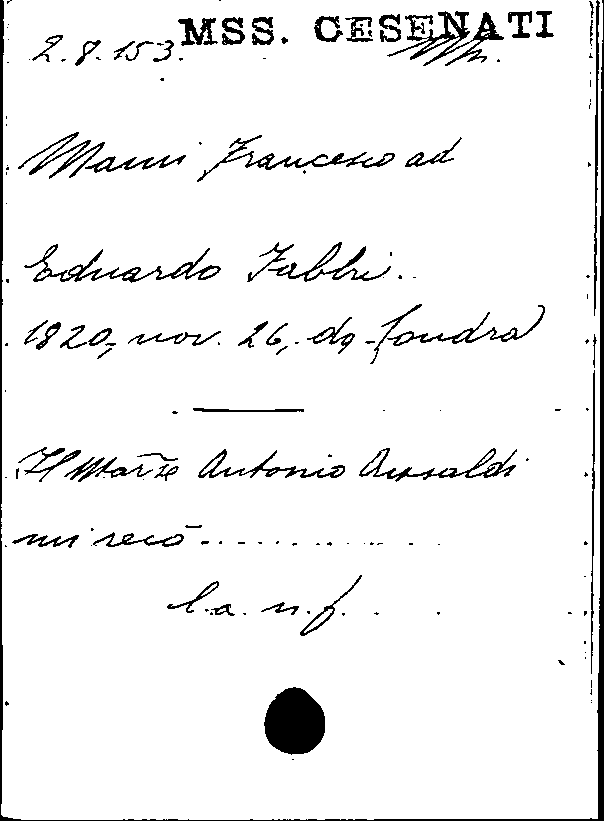 MSS. CESENATI
2.8.153.
Mami Francesco ad
Eduardo Fabbri.
1820, nov. 26, da Londra
Il March.se Antonio Ansaldi
mi recò...........
l.a. n.f.